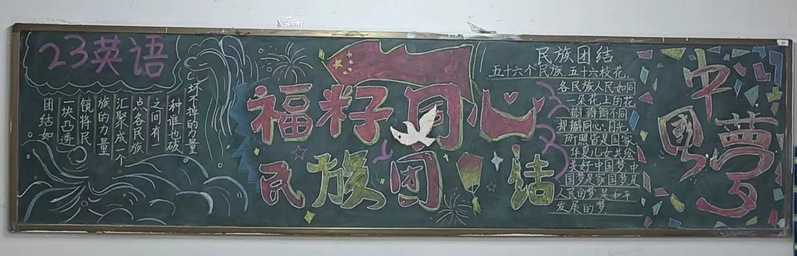 23英语
团结如
一块凸透
镜将民
族的力量
汇聚成一个
点,各民族
之间有一
种谁也破
坏不掉的力量
福籽同心
民族团结
民族团结
五十六个民族 五十六枝花,
各民族人民如同
一朵花上的花
瓣,瓣瓣不同
瓣同心,
国家
共绘
美好中国梦,中
国梦是家国梦是
人民的梦,是和平
发展的梦
中国梦